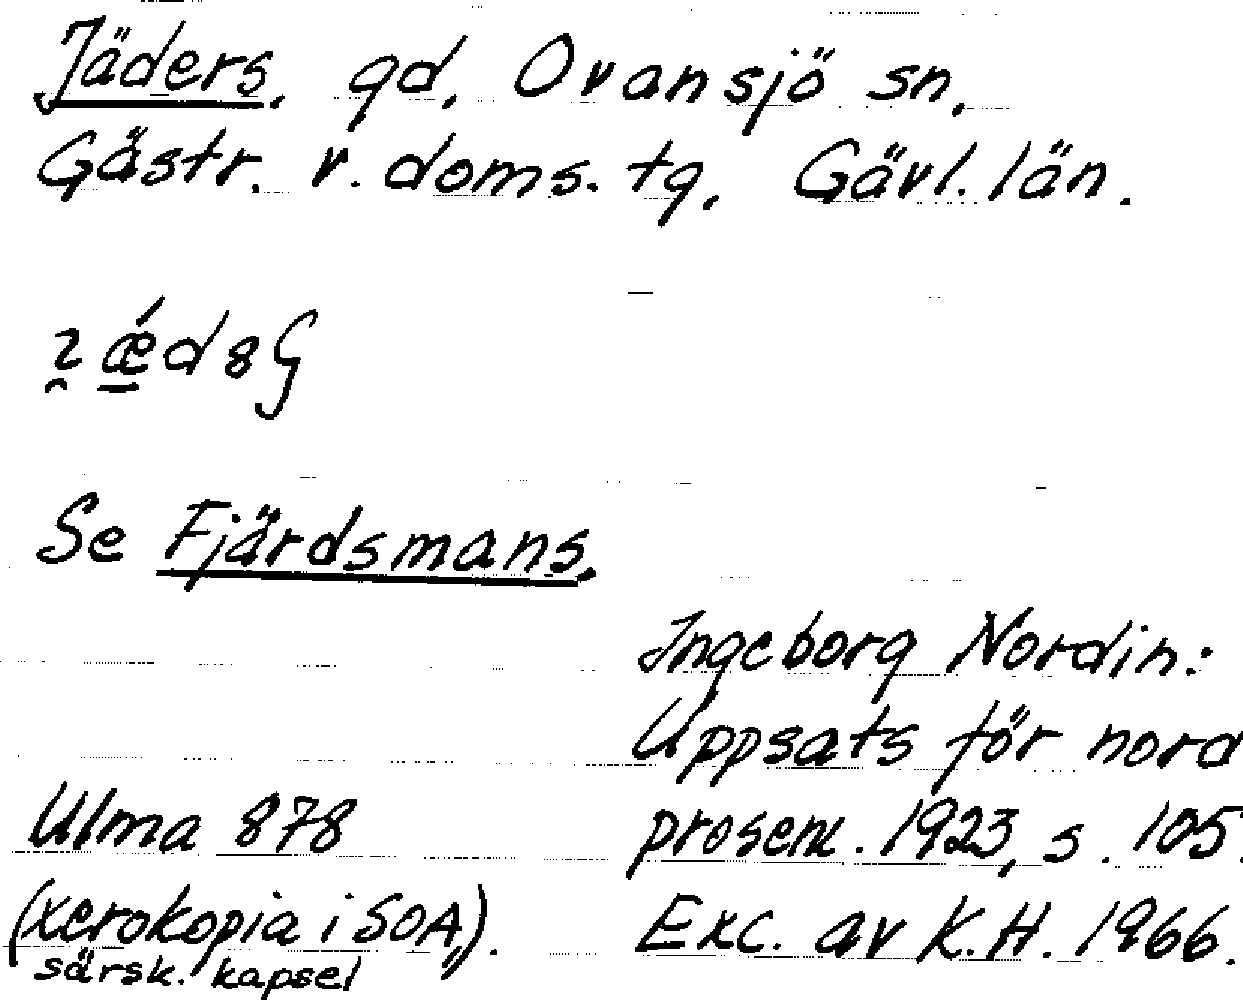 Jäders, gd, Ovansjö sn,
Gästr. v. doms. tg, Gävl. län.
Se Fjärdsmans.
Ingeborg Nordin:
Uppsats för nord
prosem. 1923, s. 105.
Ulma 878
(xerokopia i SOA,).
särsk. kapsel
Exc. av K.H. 1966.